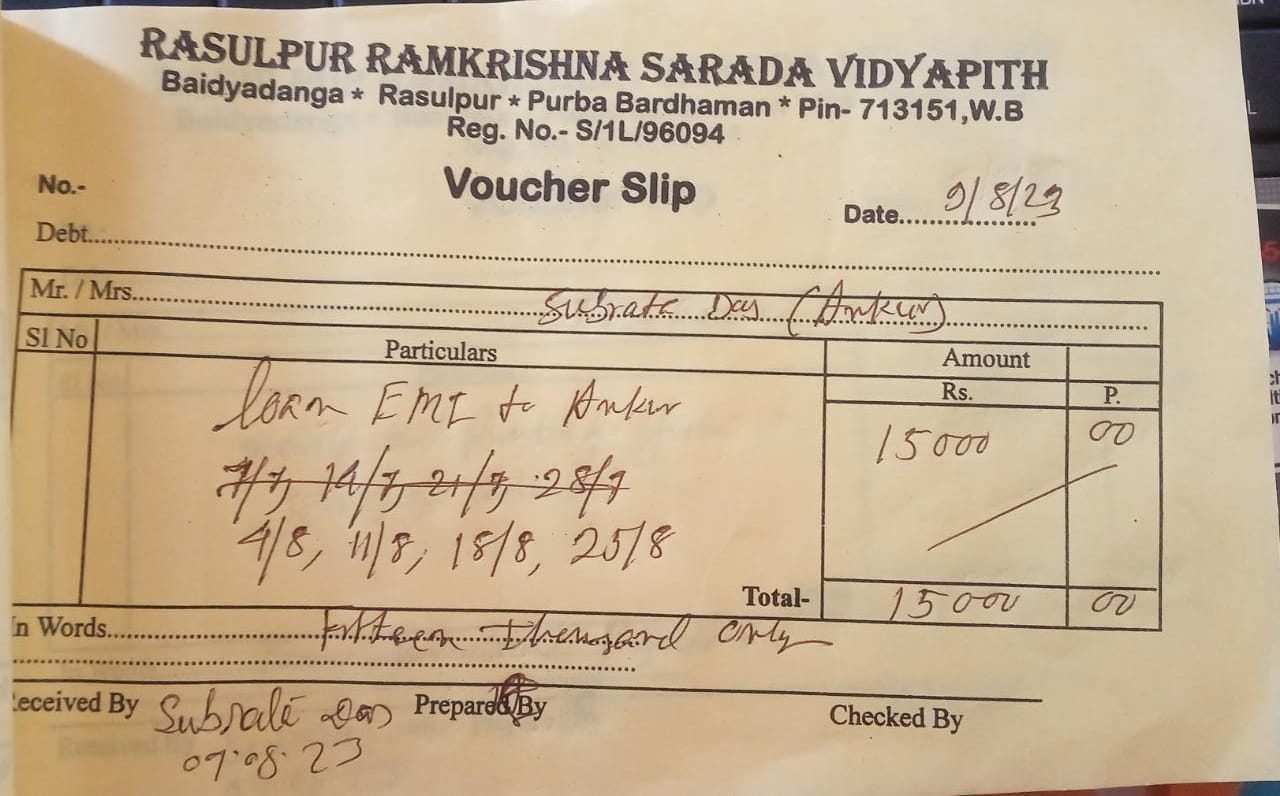 RASULPUR RAMKRISHNA SARADA VIDYAPITH
Baidyadanga * Rasulpur * Purba Bardhaman * Pin- 713151,W.B
Reg. No.- S/1L/96094
No.- Voucher Slip Date 9/8/23
Debt
Mr. / Mrs. Subrata Das (Ankur)
Sl No Particulars Amount
Rs. P.
loan EMI to Ankur 15000 00
7/7, 14/7, 21/7, 28/7
4/8, 11/8, 18/8, 25/8
Total- 15000 00
n Words Fifteen Thousand Only
eceived By Subrata Das Prepared By Checked By
09.08.23